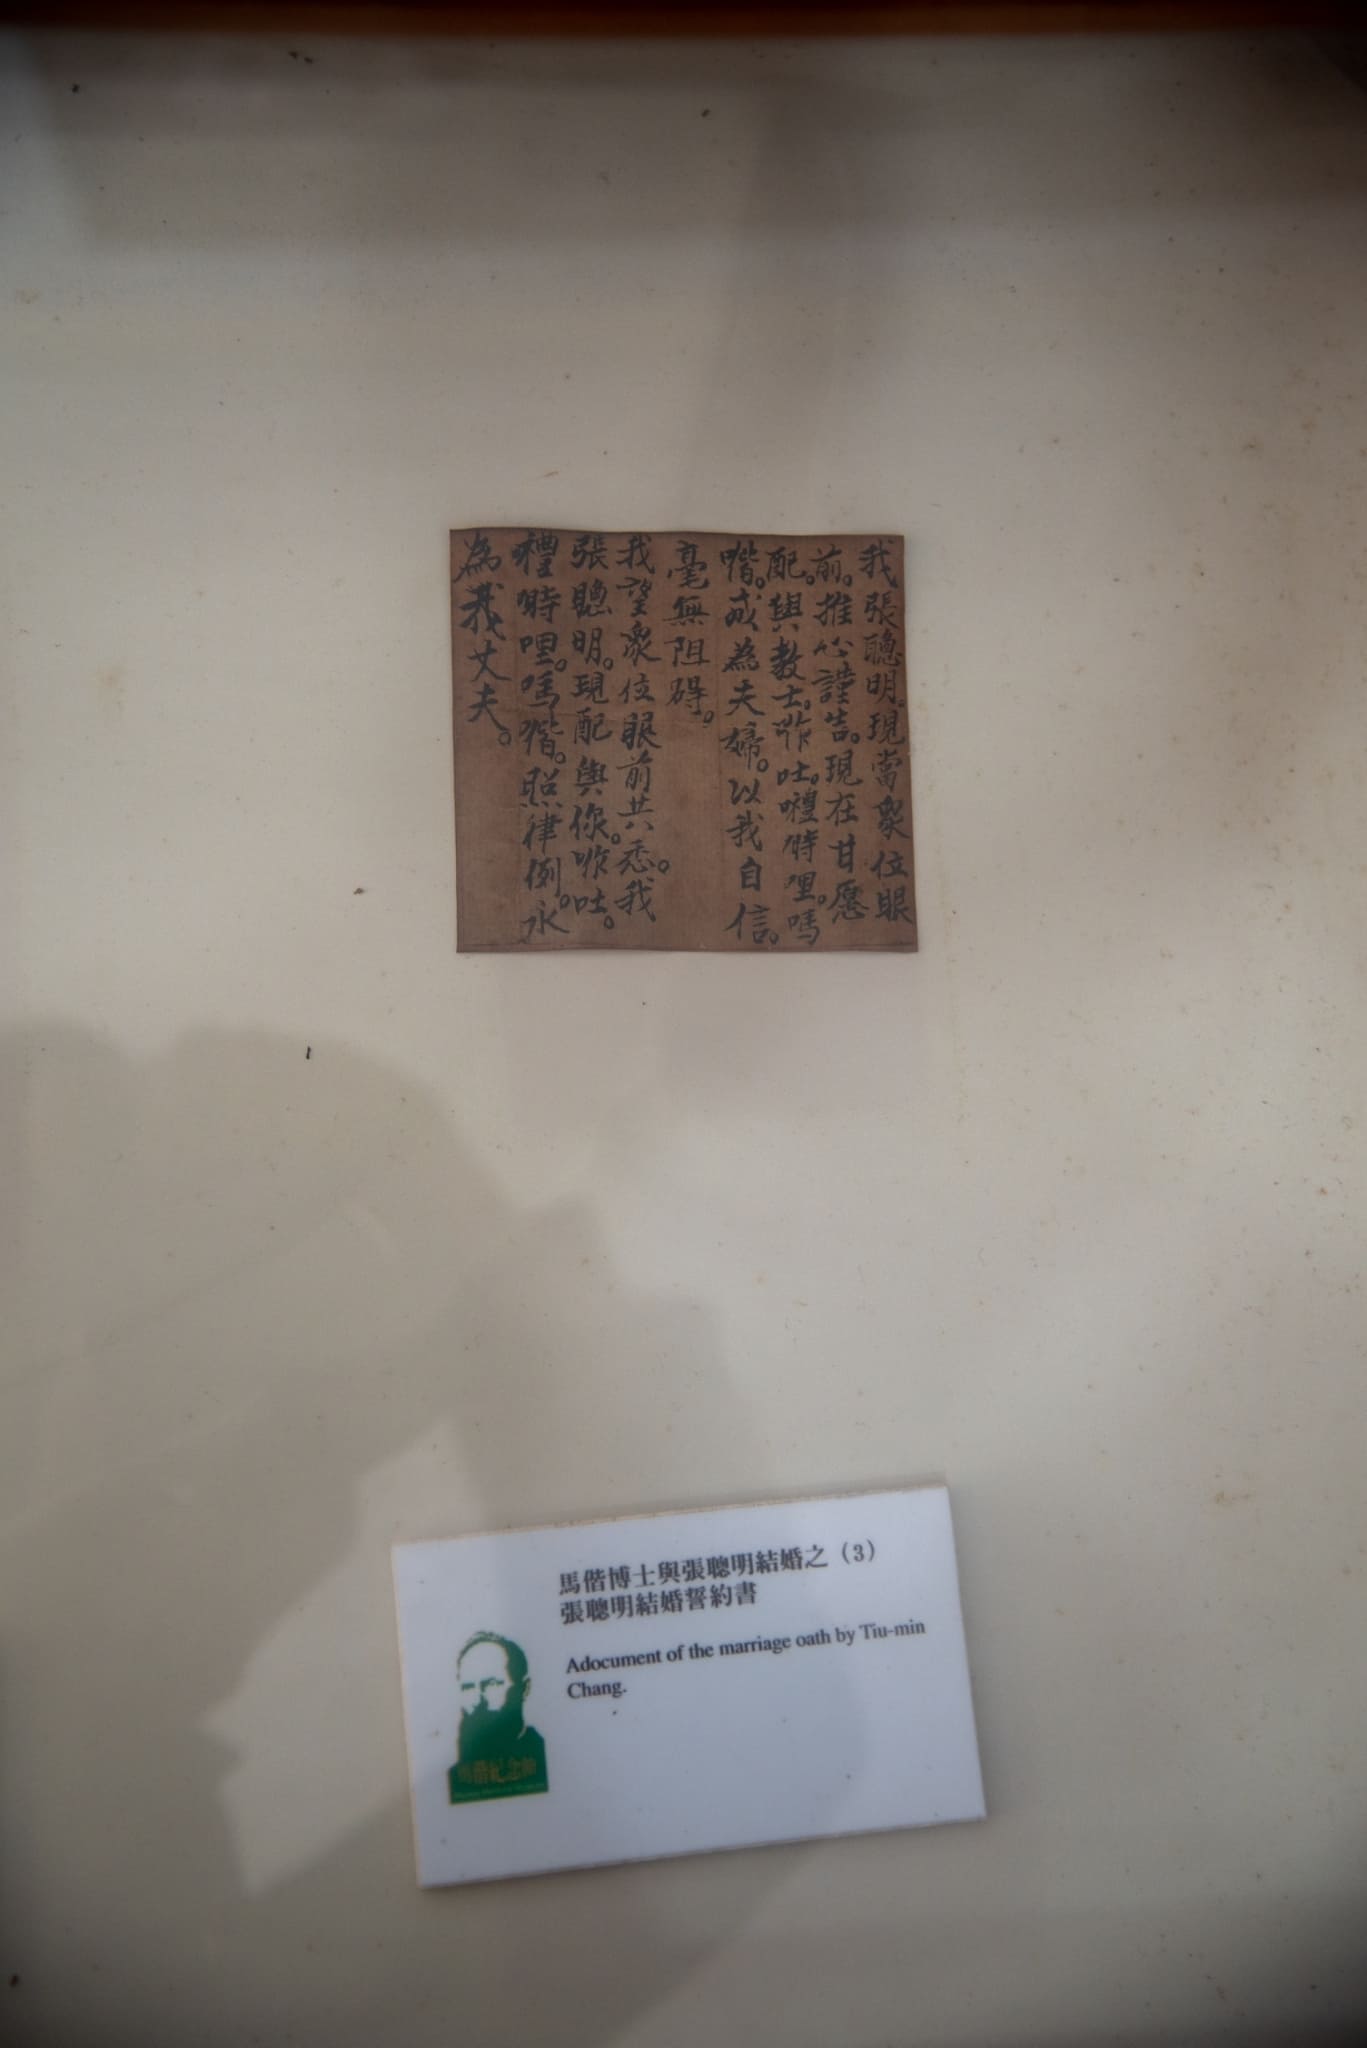 我張聰明。現當衆位眼
前。推心謹告。現在甘愿
配。與教士。㖡吐。嘡時哩。嗎
喈。成為夫婦。以我自信。
毫無阻碍。
我望衆位眼前共悉。我
張聰明。現配與你。㖡吐。
嘡時哩。嗎喈。照律例。永
為我丈夫。
馬偕博士與張聰明結婚之（3）
張聰明結婚誓約書
Adocument of the marriage oath by Tiu-min
Chang.
馬偕紀念館